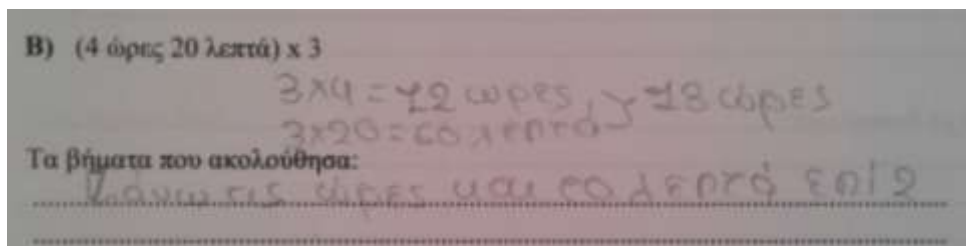 Β) (4 ώρες 20 λεπτά) x 3
3x4=12 ωρες
13 ώρες
3x20=60 λεπτά
Τα βήματα που ακολούθησα:
Κάνω τις ώρες και το λεπτά επί 2